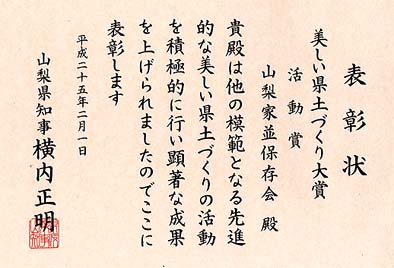 表彰状
美しい県土づくり大賞
活動賞
山梨家並保存会 殿
貴殿は他の模範となる先進
的な美しい県土づくりの活動
を積極的に行い顕著な成果
を上げられましたのでここに
表彰します
平成二十五年二月一日
山梨県知事 横内正明